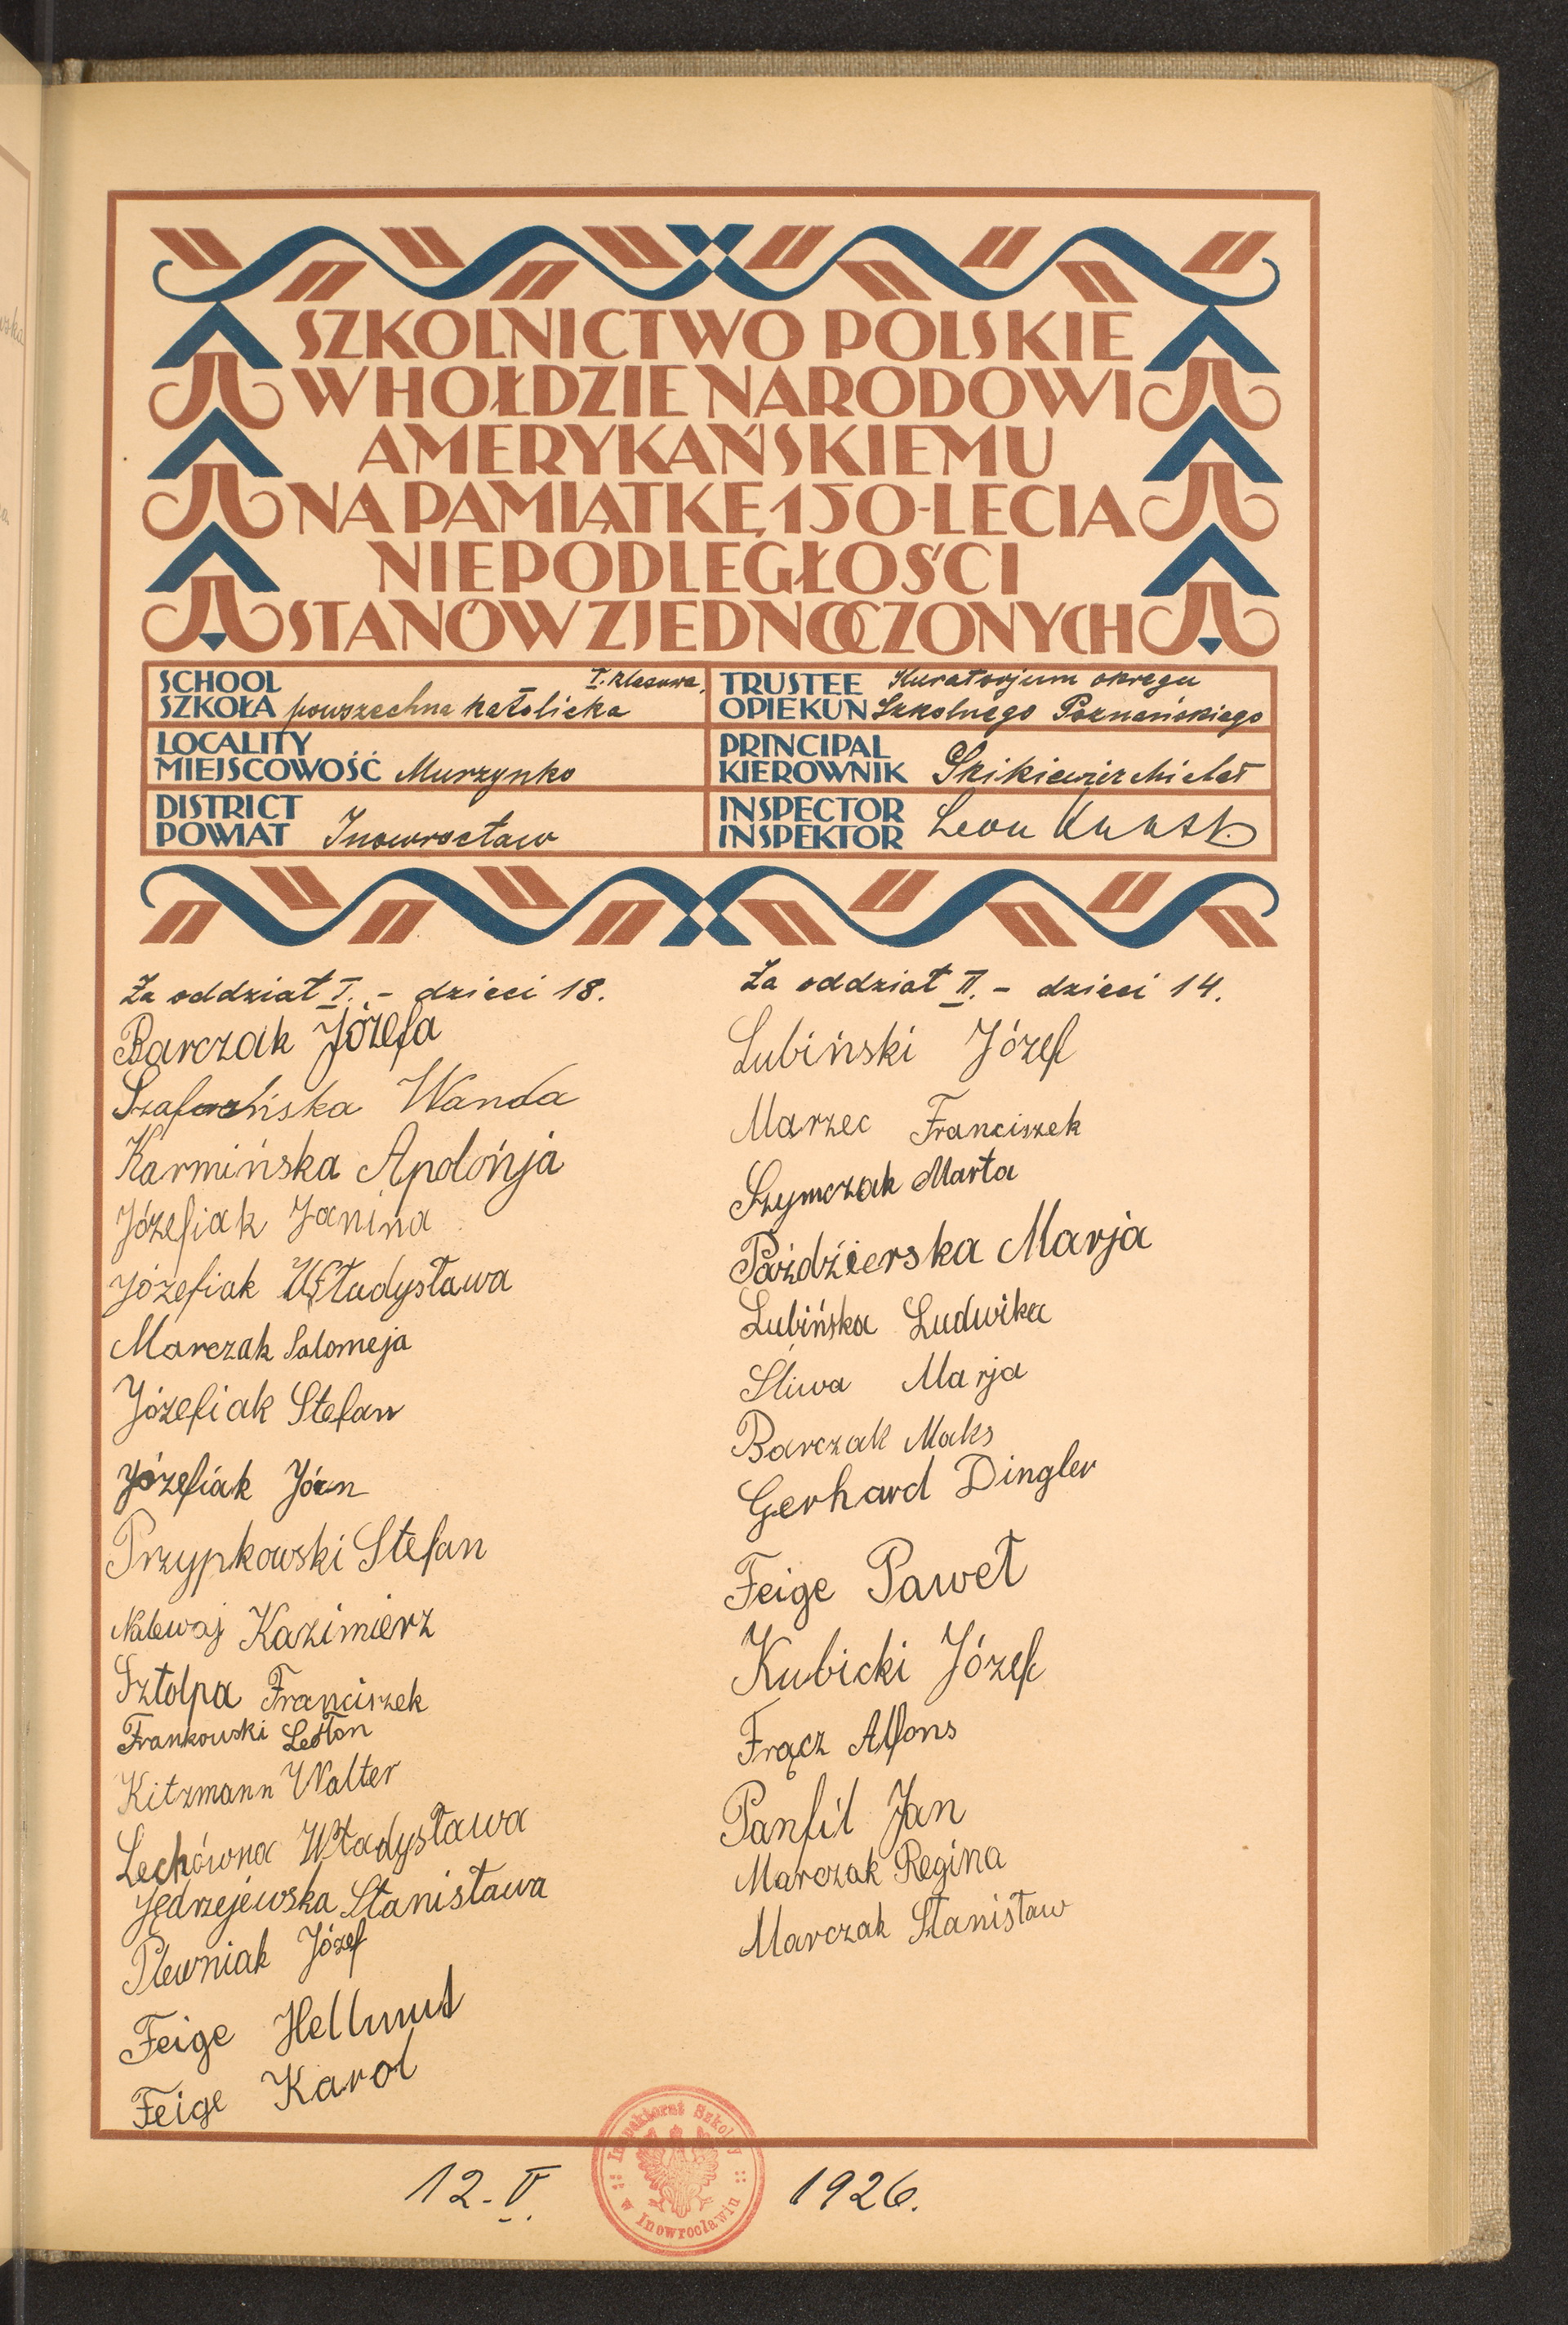 SZKOLNICTWO POLSKIE
W HOŁDZIE NARODOWI
AMERYKAŃSKIEMU
NA PAMIĄTKĘ 150-LECIA
NIEPODLEGŁOŚCI
STANÓW ZJEDNOCZONYCH
SCHOOL
SZKOŁA powszechna katolicka I. klasowa,
TRUSTEE Kuratorjum okręgu
OPIEKUN Szkolnego Poznańskiego
LOCALITY
MIEJSCOWOŚĆ Murzynko
PRINCIPAL
KIEROWNIK Skikiewicz Michał
DISTRICT
POWIAT Inowrocław
INSPECTOR
INSPEKTOR Leon
Za oddział I. - dzieci 18.
Barczak Józefa
Wanda
Karmińska Apolońja
Józefiak Janina
Józefiak Władysława
Marczak Salomeja
Józefiak Stefan
Józefiak Jón
Przypkowski Stefan
Nalewaj Kazimierz
Sztolpa Franciszek
Frankowski
Kitzmann Walter
Lechówna Władysława
Jędrzejewska Stanisława
Plewniak Józef
Feige Hellmut
Feige Karol
Za oddział II. - dzieci 14.
Lubiński Józef
Marzec Franciszek
Szymczak Marta
Paździerska Marja
Lubińska Ludwika
Śliwa Marja
Barczak Maks
Gerhard Dingler
Feige Paweł
Kubicki Józef
Frącz Alfons
Panfil Jan
Marczak Regina
Marczak Stanisław
12. V. 1926.
Inspektorat Szkolny
w Inowrocławiu